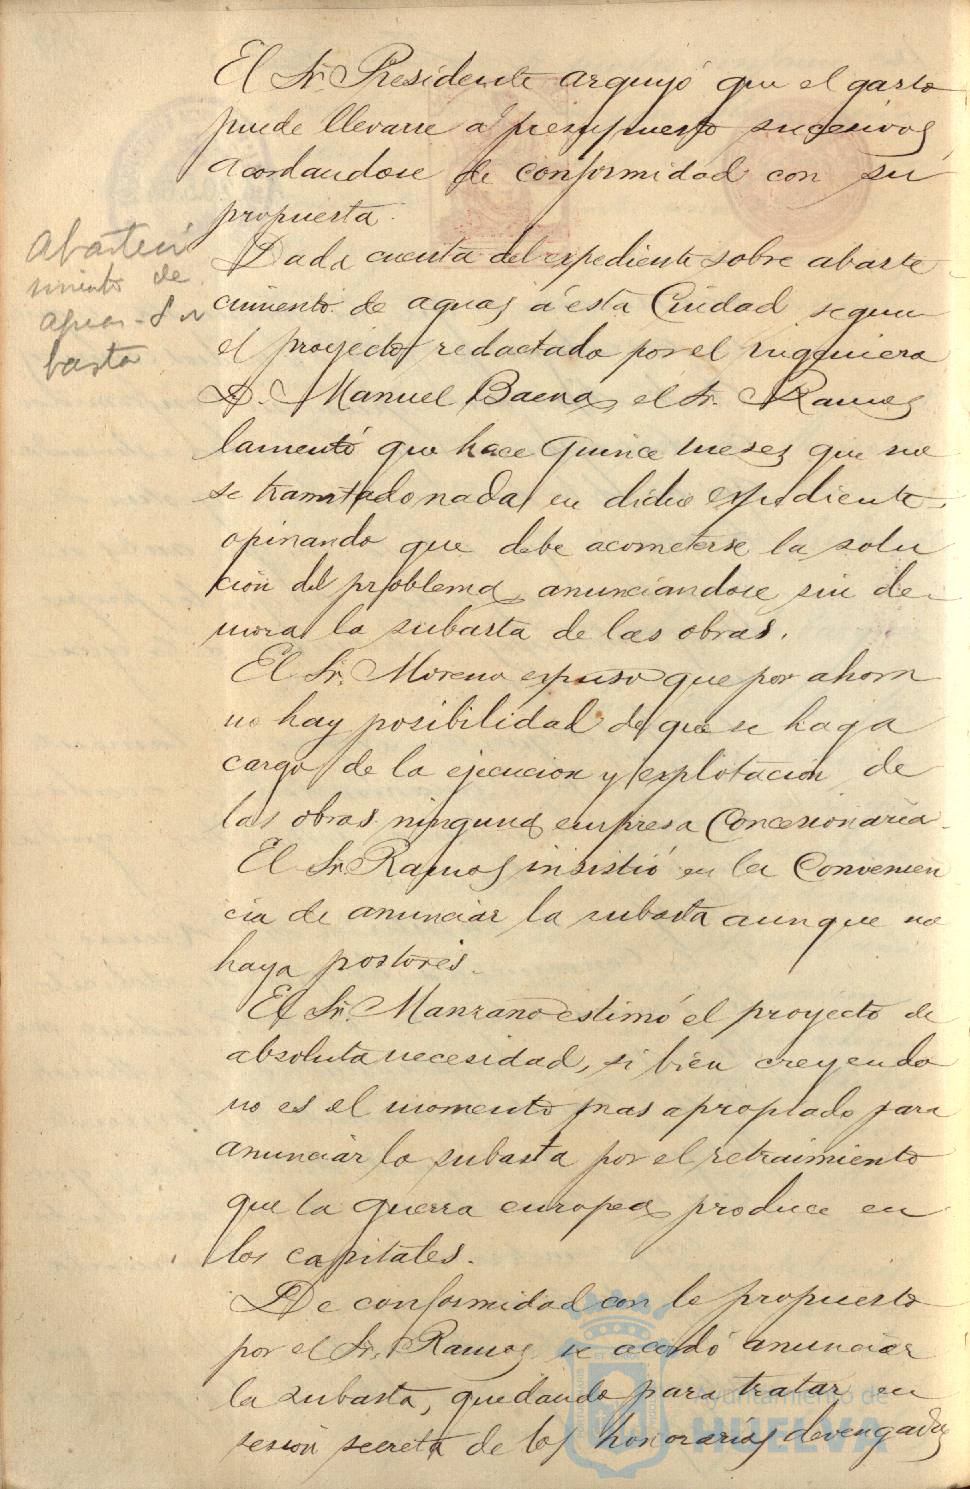 El Sr. Presidente arguyó que el gasto
puede llevarse al presupuesto sucesivos,
acordandose de conformidad con su
propuesta.
Abasteci
miento de
aguas - Su
basta
Dada cuenta del expediente sobre abaste
cimiento de aguas á esta Ciudad segun
el proyecto redactado por el ingeniero
D. Manuel Baena, el Sr. Ramos
lamentó que hace quince meses que no
se tramitado nada en dicho expediente,
opinando que debe acometerse la solu
ción del problema, anunciandose sin de-
mora la subasta de las obras.
El Sr. Moreno expuso que por ahora
no hay posibilidad de que se haga
cargo de la ejecucion y explotación de
las obras ninguna empresa Concesionaria.
El Sr. Ramos insistió en la Convenien
cia de anunciar la subasta aunque no
haya postores.
El Sr. Manzano estimó el proyecto de
absoluta necesidad, si bien creyendo
no es el momento mas apropiado para
anunciar la subasta por el retraimiento
que la guerra europea produce en
los capitales.
De conformidad con lo propuesto
por el Sr. Ramos se acordó anunciar
la subasta, quedando para tratar en
sesión secreta de los honorarios devengados
Ayuntamiento de
HUELVA